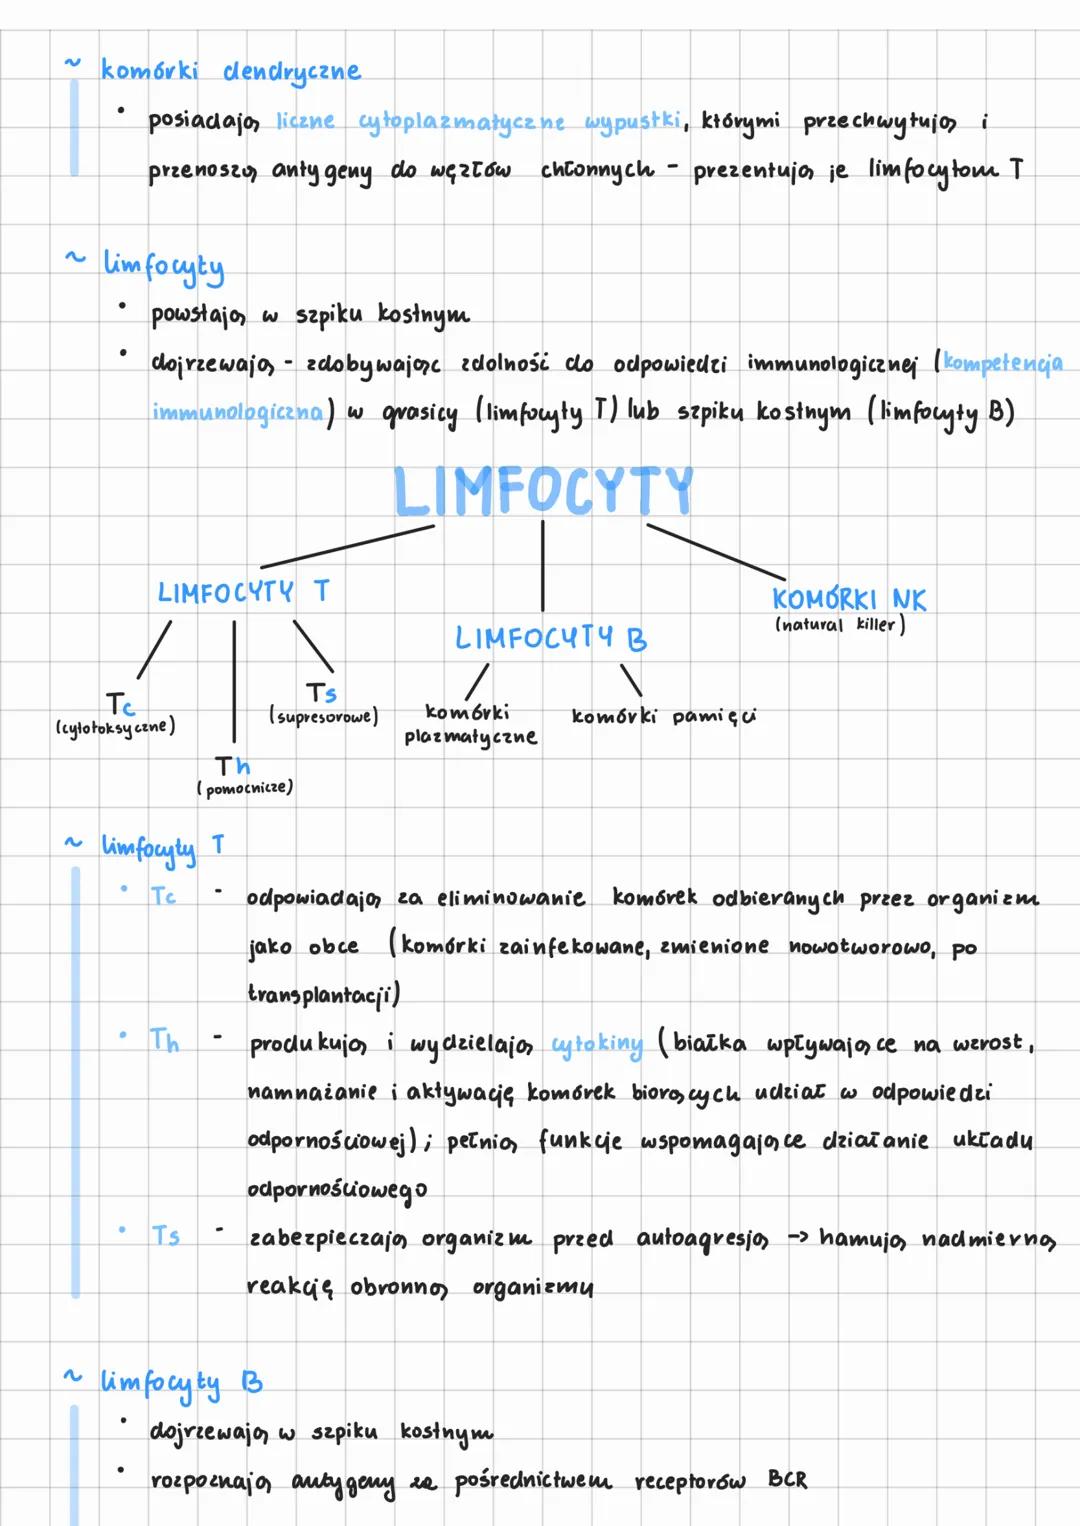 ~ komórki dendryczne
• posiadają liczne cytoplazmatyczne wypustki, którymi przechwytują i
przenoszą antygeny do węzłów chłonnych - prezentują je limfocytom T
~ limfocyty
• powstają w szpiku kostnym
• dojrzewają - zdobywając zdolność do odpowiedzi immunologicznej (kompetencja
immunologiczna) w grasicy (limfocyty T) lub szpiku kostnym (limfocyty B)
LIMFOCYTY
LIMFOCYTY T
KOMÓRKI NK
(natural killer)
LIMFOCYTY B
Tc
(cytotoksyczne)
Ts
(supresorowe)
komórki
plazmatyczne
komórki pamięci
Th
(pomocnicze)
~ limfocyty T
• Tc - odpowiadają za eliminowanie komórek odbieranych przez organizm
jako obce (komórki zainfekowane, zmienione nowotworowo, po
transplantacji)
• Th - produkują i wydzielają cytokiny (białka wpływające na wzrost,
namnażanie i aktywację komórek biorących udział w odpowiedzi
odpornościowej); pełnią funkcje wspomagające działanie układu
odpornościowego
• Ts - zabezpieczają organizm przed autoagresją -> hamują nadmierną
reakcję obronną organizmu
~ limfocyty B
• dojrzewają w szpiku kostnym
• rozpoznają antygeny za pośrednictwem receptorów BCR